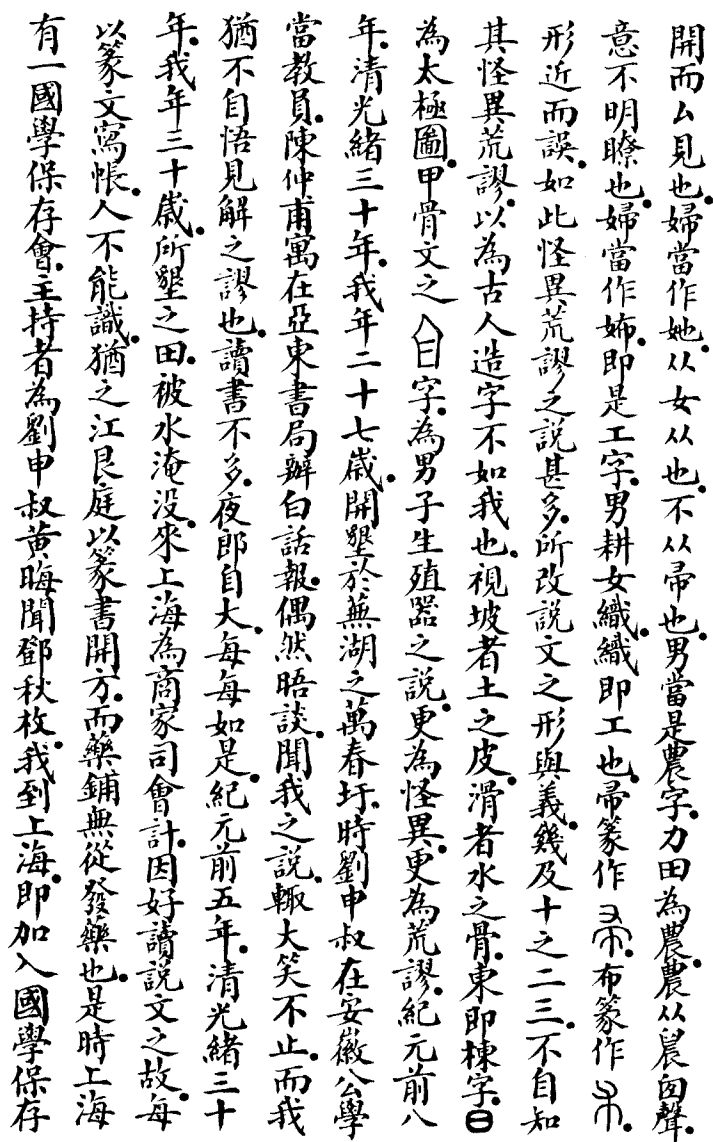 開而厶見也。婦當作她。从女从也。不从帚也。男當是農字。力田為農。農从䢅囟聲。
意不明瞭也。婦當作㛮。即是工字。男耕女織。織即工也。帚篆作。布篆作。
形近而誤。如此怪異荒謬之說甚多。所改說文之形與義。幾及十之二三。不自知
其怪異荒謬。以為古人造字不如我也。視坡者土之皮。滑者水之骨。東即棟字。日
為太極圖。甲骨文之字。為男子生殖器之說。更為怪異。更為荒謬。紀元前八
年。清光緒三十年。我年二十七歲。開墾於蕪湖之萬春圩。時劉申叔在安徽公學
當教員。陳仲甫寓在亞東書局辦白話報。偶然晤談。聞我之說。輙大笑不止。而我
猶不自悟見解之謬也。讀書不多。夜郎自大。每每如是。紀元前五年。清光緒三十
年。我年三十歲。所墾之田。被水淹没。來上海為商家司會計。因好讀說文之故。每
以篆文寫帳。人不能識。猶之江艮庭以篆書開方。而藥鋪無從發藥也。是時上海
有一國學保存會。主持者為劉申叔黃晦聞鄧秋枚。我到上海。即加入國學保存